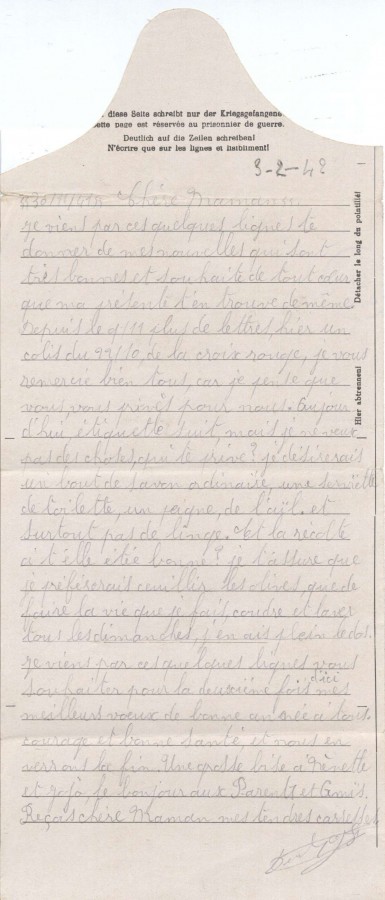 diese Seite schreibt nur der Kriegsgefangene
Cette page est réservée au prisonnier de guerre.
Deutlich auf die Zeilen schreiben!
N'écrire que sur les lignes et lisiblement!
3-2-43
Chère Maman
je viens par ces quelques lignes te
donner de mes nouvelles qui sont
très bonnes et souhaite de tout cœur
que ma présente t'en trouve de même
Depuis le 9/11 plus de lettres, hier un
colis du 22/10, de la croix rouge, je vous
remercie bien tous, car je pense que
vous, vous privés pour nous. Aujour
d'hui, étiquette suit, mais je ne veux
pas de choses, qui te prive? je désirerais
un bout de savon ordinaire, une serviette
de toilette, un peigne, de l'aïl. et
surtout pas de linge. Et la récolte
a t'elle étée bonne? je t'assure que
je préfèrerais ceuillir les olives, que de
faire la vie que je fais, coudre et laver
tous les dimanches, j'en ais plein le dos.
je viens par ces quelques lignes vous
souhaiter pour la deuxième fois d'ici mes
meilleurs vœux de bonne année à tous.
courage et bonne santé, et nous en
verrons la fin. Une grosse bise à Nènette
et jojo, le bonjour aux Parents et Amis.
Reçois chère Maman mes tendres caresses
Hier abtrennen! Détacher le long du pointillé!